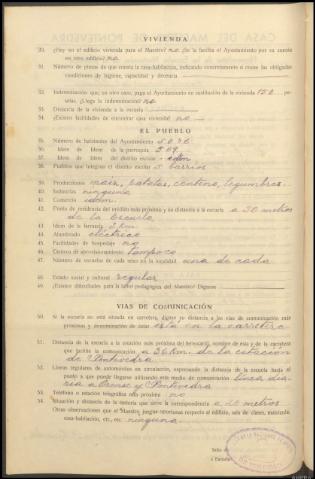 VIVIENDA
30. ¿Hay en el edificio vivienda para el Maestro? no ¿Se la facilita el Ayuntamiento por su cuenta
en otro edificio? no
31. Número de piezas de que consta la casa-habitación, indicando someramente si reúne las obligadas
condiciones de higiene, capacidad y decencia
32. Indemnización que, en otro caso, paga el Ayuntamiento en sustitución de la vivienda 150 pe-
setas. ¿Llega la indemnización? no
33. Distancia de la vivienda a la escuela
34. ¿Existen facilidades de encontrar casa vivienda? no
EL PUEBLO
35. Número de habitantes del Ayuntamiento
36. Idem de ídem de la parroquia
37. Idem de ídem de distrito escolar idem
38. Pueblos que integran el distrito escolar 5 barrios
39. Producciones maíz, patatas, centeno, legumbres
40. Industria ninguna
41. Comercio idem
42. Punto de residencia del médico más próximo y su distancia a la escuela a 30 metros
de la Escuela
43. Idem de la farmacia 2 km
44. Alumbrado eléctrico
45. Facilidades de hospedaje no
46. Centros de aprovisionamiento tampoco
47. Número de escuelas de cada sexo en la localidad una de cada
48. Estado social y cultural regular
49. ¿Existen dificultades para la labor pedagógica del Maestro? Díganse
VIAS DE COMUNICACIÓN
50. Si la escuela no está situada en carretera, dígase su distancia a las vías de comunicación más
próximas y denominación de éstas está en la carretera
51. Distancia de la escuela a la estación más próxima del ferrocarril, nombre de ésta y de la carretera
que facilite la comunicación a 36 km. de la estación
de Pontevedra
52. Líneas regulares de automóviles en circulación, expresando la distancia de la escuela hasta el
punto a que puede llegarse utilizando este medio de comunicación línea dia-
ria a Orense y Pontevedra
53. Teléfono o estación telegráfica más próxima no
54. Situación y distancia de la cartería que sirve la correspondencia a 20 metros
Otras observaciones que el Maestro juzgue oportunas respecto al edificio, sala de clases, material,
casa-habitación, etc., etc. ninguna